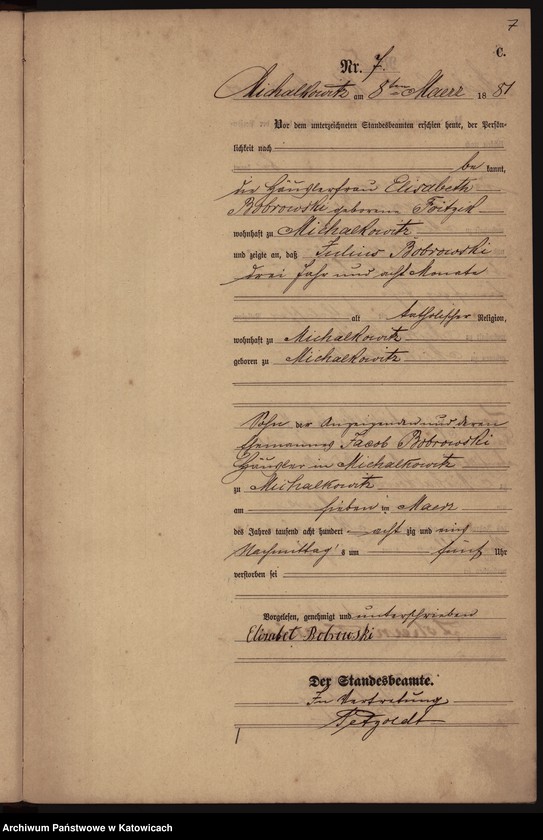 7
C.
Nr. 7.
Michalkowitz am 8ten Maerz 1881
Vor dem unterzeichneten Standesbeamten erschien heute, der Persön-
lichkeit nach
be kannt,
die Häuslerfrau Elisabeth
Bobrowski geborene
wohnhaft zu Michalkowitz
und zeigte an, daß Julius Bobrowski
drei Jahr und acht Monate
alt katholischer Religion,
wohnhaft zu Michalkowitz
geboren zu Michalkowitz
Sohn der Anzeigenden und deren
Ehemannes Jacob Bobrowski
Häusler in Michalkowitz
zu Michalkowitz
am sieben im Maerz
des Jahres tausend acht hundert acht zig und eins
Nachmittag s um fünf Uhr
verstorben sei
Vorgelesen, genehmigt und unterschrieben
Elisabet Bobrowski
Der Standesbeamte.
In Vertretung
Petzoldt
Archiwum Państwowe w Katowicach